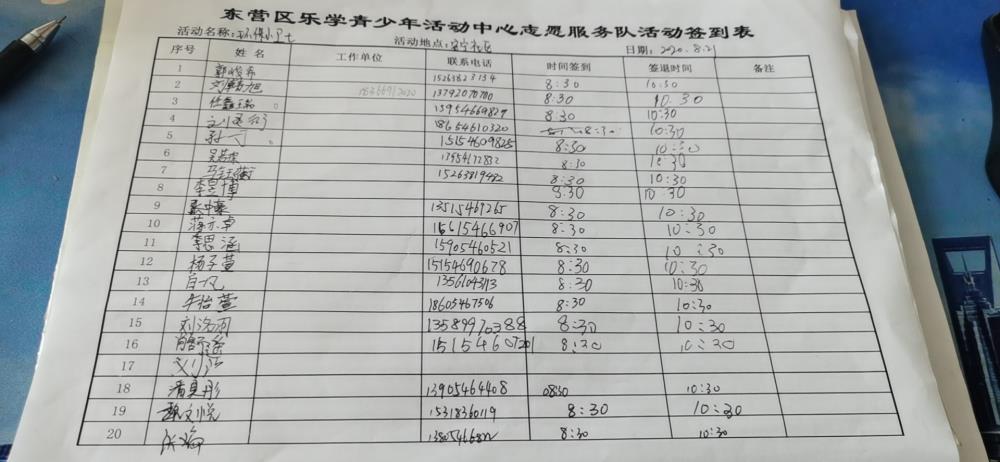 东营区乐学青少年活动中心志愿服务队活动签到表
活动名称:环保小卫士 活动地点:安宁社区 日期:2020.8.21
序号 姓名 工作单位 联系电话 时间签到 签退时间 备注
1 15263823134 8:30 10:30
2 刘 旭 18366912020 13792070700 8:30 10:30
3 任鑫瑞 15954669829 8:30 10:30
4 18654610320 8:30 10:30
5 孙 15154609825 8:30 10:30
6 吴若 8:30 10:30
7 马钰 15263819492 8:30 10:30
8 李昱博 8:30 10:30
9 13515469265 8:30 10:30
10 蒋 卓 15615466907 8:30 10:30
11 李思涵 15905460521 8:30 10:30
12 杨子萱 15154690678 8:30 10:30
13 白 8:30 10:30
14 牛怡萱 18605467506 8:30 10:30
15 刘洛雨 13589970388 8:30 10:30
16 15154607201 8:20 10:20
17 刘
18 潘 彤 13905464408 0830 10:30
19 魏文悦 15318360119 8:30 10:30
20 8:30 10:30